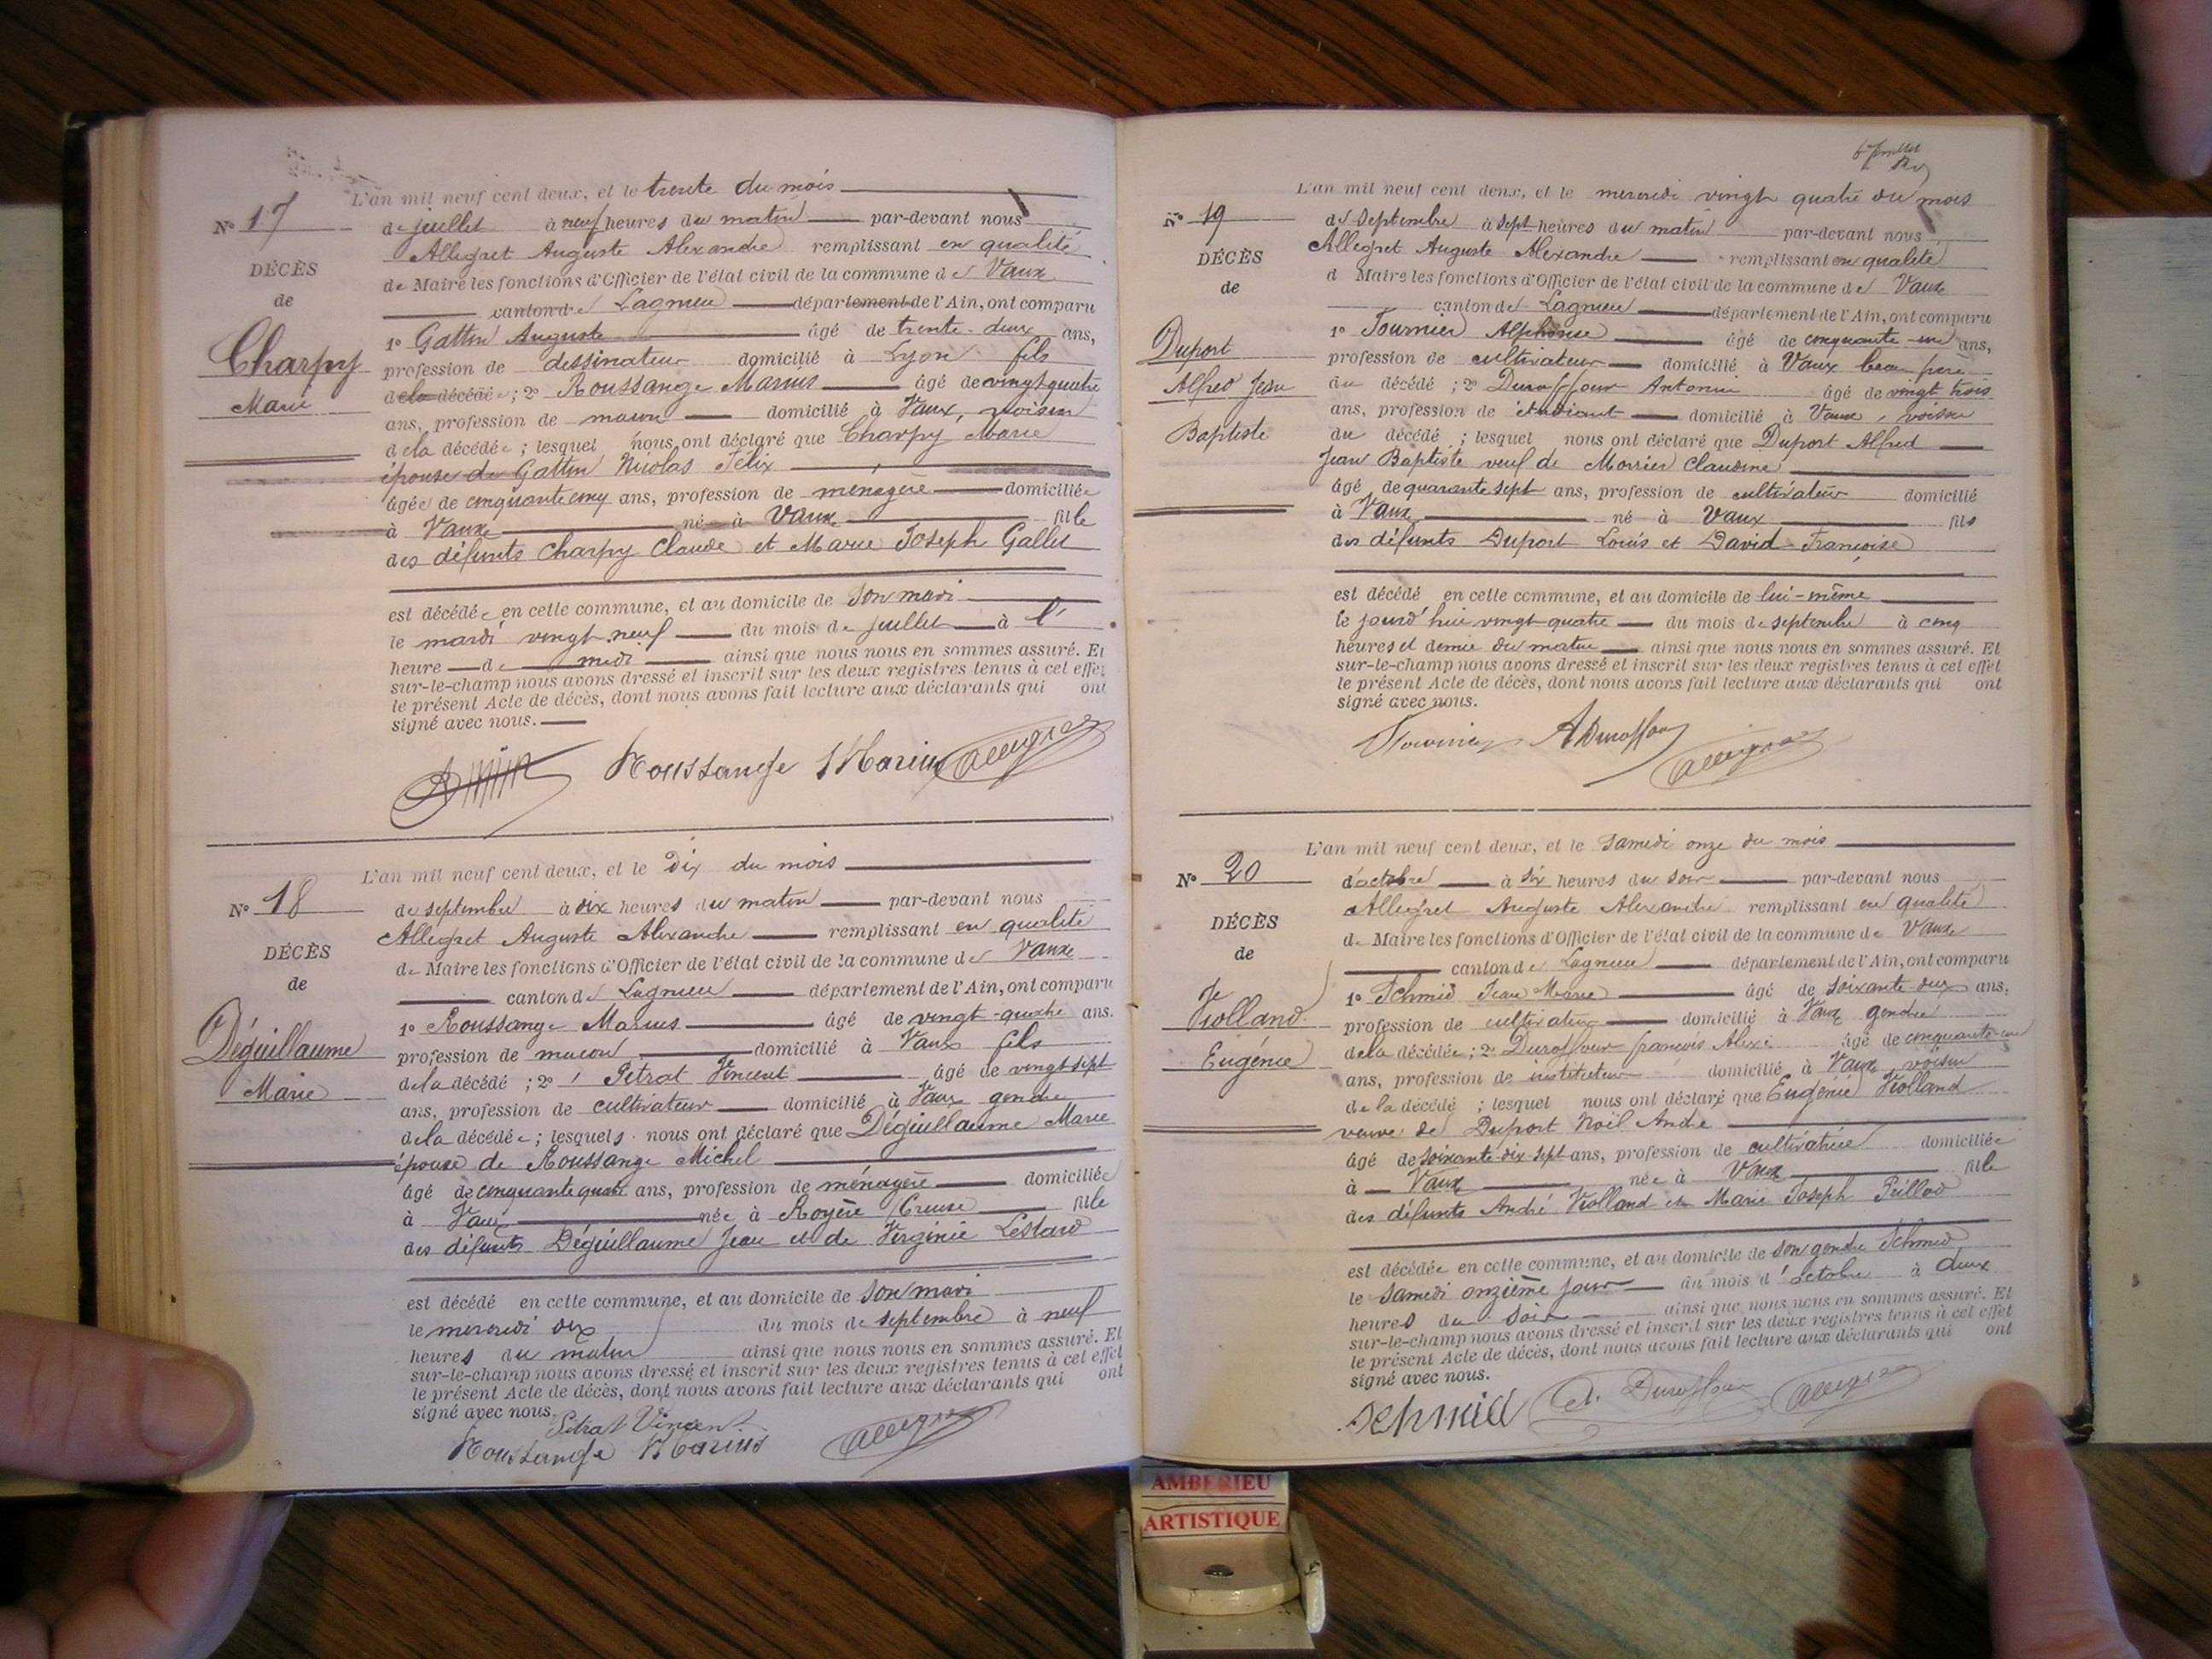 L'an mil neuf cent deux, et le trente du mois
N° 17
de juillet à neuf heures du matin par-devant nous
Allegret Auguste Alexandre remplissant en qualité
DÉCÈS
de Maire les fonctions d'Officier de l'état civil de la commune de Vaux
de
canton de Lagnieu département de l'Ain, ont comparu
1° Gattin Auguste âgé de trente-deux ans,
Charpy
profession de dessinateur domicilié à Lyon fils
Marie
de la décédée; 2° Roussange Marius âgé de vingt quatre
ans, profession de macon domicilié à Vaux, voisin
de la décédée; lesquel nous ont déclaré que Charpy Marie
épouse de Gattin Nicolas Félix
âgée de cinquante cinq ans, profession de ménagère domiciliée
à Vaux né à Vaux fille
des défunts Charpy Claude et Marie Joseph Gallet
est décédée en cette commune, et au domicile de son mari
le mardi vingt neuf du mois de juillet à l'
heure de midi ainsi que nous nous en sommes assuré. Et
sur-le-champ nous avons dressé et inscrit sur les deux registres tenus à cet effet
le présent Acte de décès, dont nous avons fait lecture aux déclarants qui ont
signé avec nous.
Roussange Marius Allegret
L'an mil neuf cent deux, et le Dix du mois
N° 18
de septembre à dix heures du matin par-devant nous
Allegret Auguste Alexandre remplissant en qualité
DÉCÈS
de Maire les fonctions d'Officier de l'état civil de la commune de Vaux
de
canton de Lagnieu département de l'Ain, ont comparu
1° Roussange Marius âgé de vingt-quatre ans.
Déguillaume
profession de macon domicilié à Vaux fils
Marie
de la décédé; 2° Petrat Vincent âgé de vingt sept
ans, profession de cultivateur domicilié à Vaux gendre
de la décédée; lesquels nous ont déclaré que Déguillaume Marie
épouse de Roussange Michel
âgé de cinquante quatre ans, profession de ménagère domiciliée
à Vaux née à Royère Creuse fille
des défunts Déguillaume Jean et de Virginie Lestard
est décédé en cette commune, et au domicile de son mari
le mercredi dix du mois de septembre à neuf
heures du matin ainsi que nous nous en sommes assuré. Et
sur-le-champ nous avons dressé et inscrit sur les deux registres tenus à cet effet
le présent Acte de décès, dont nous avons fait lecture aux déclarants qui ont
signé avec nous.
Petrat Vincent
Roussange Marius Allegret
L'an mil neuf cent deux, et le mercredi vingt quatre du mois
N° 19
de septembre à sept heures du matin par-devant nous
Allegret Auguste Alexandre remplissant en qualité
DÉCÈS
d Maire les fonctions d'Officier de l'état civil de la commune de Vaux
de
canton de Lagnieu département de l'Ain, ont comparu
1° Tournier Alphonse âgé de cinquante-un ans,
Duport
profession de cultivateur domicilié à Vaux beau père
Alfred Jean
du décédé; 2° Duroffour Antonin âgé de vingt trois
ans, profession de étudiant domicilié à Vaux, voisin
Baptiste
du décédé; lesquel nous ont déclaré que Duport Alfred
Jean Baptiste veuf de Morrier Claudine
âgé de quarante sept ans, profession de cultivateur domicilié
à Vaux né à Vaux fils
des défunts Duport Louis et David Françoise
est décédé en cette commune, et au domicile de lui-même
le jourd'hui vingt quatre du mois de septembre à cinq
heures et demie du matin ainsi que nous nous en sommes assuré. Et
sur-le-champ nous avons dressé et inscrit sur les deux registres tenus à cet effet
le présent Acte de décès, dont nous avons fait lecture aux déclarants qui ont
signé avec nous.
Tournier A Duroffour
Allegret
L'an mil neuf cent deux, et le samedi onze du mois
N° 20
d'octobre à six heures du soir par-devant nous
Allegret Auguste Alexandre remplissant en qualité
DÉCÈS
de Maire les fonctions d'Officier de l'état civil de la commune de Vaux
de
canton de Lagnieu département de l'Ain, ont comparu
1° Schmid Jean Marie âgé de soixante-deux ans,
Violland
profession de cultivateur domicilié à Vaux gendre
Eugénie
de la décédée; 2° Duroffour françois Alexi âgé de cinquante-un
ans, profession de instituteur domicilié à Vaux voisin
de la décédé; lesquel nous ont déclaré que Eugénie Violland
veuve de Duport Noël André
âgé de soixante-dix-sept ans, profession de cultivatrice domiciliée
à Vaux née à Vaux fille
des défunts André Violland et Marie Joseph Prillod
est décédée en cette commune, et au domicile de son gendre Schmid
le samedi onzième jour du mois d'octobre à deux
heures du soir ainsi que nous nous en sommes assuré. Et
sur-le-champ nous avons dressé et inscrit sur les deux registres tenus à cet effet
le présent Acte de décès, dont nous avons fait lecture aux déclarants qui ont
signé avec nous.
Schmid A. Duroffour Allegret
AMBERIEU
ARTISTIQUE